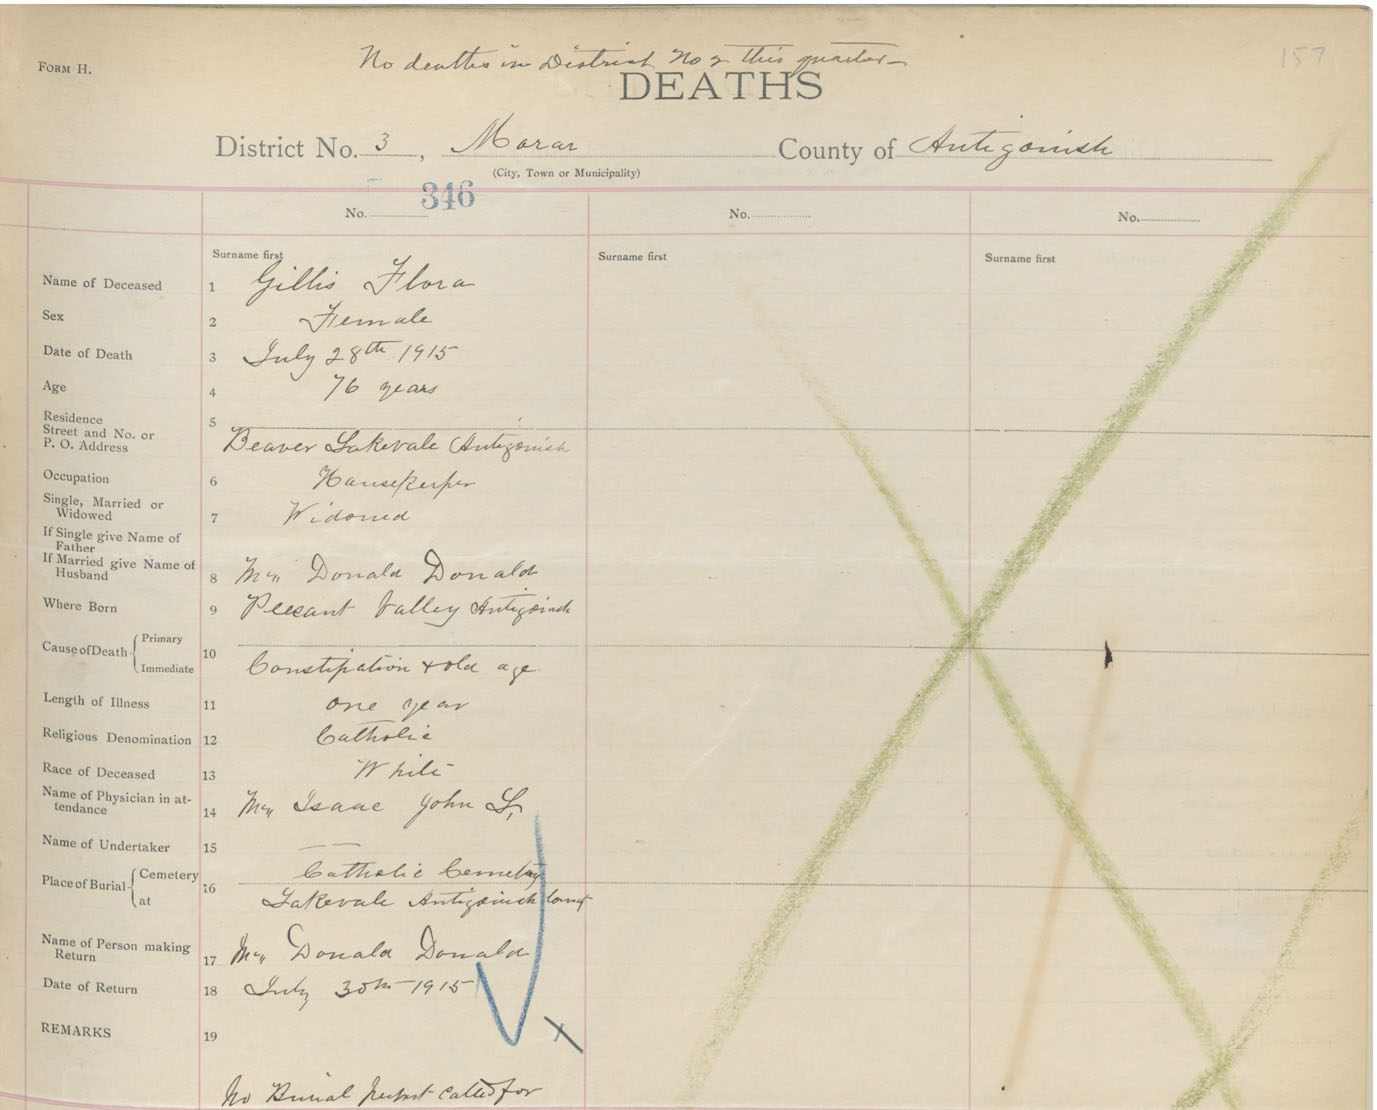 157
No deaths in District No 2 this quarter
FORM H.
DEATHS
District No. 3, Morar County of Antigonish
(City, Town or Municipality)
346
No. No. No.
Surname first Surname first Surname first
Name of Deceased 1 Gillis Flora
Sex 2 Female
Date of Death 3 July 28th 1915
Age 4 76 years
Residence
Street and No. or
P. O. Address 5 Beaver Lakevale Antigonish
Occupation 6 Housekeeper
Single, Married or
Widowed 7 Widowed
If Single give Name of
Father
If Married give Name of
Husband 8 Mc Donald Donald
Where Born 9 Plesant Valley Antigonish
Cause of Death { Primary
Immediate 10 Constipation & old age
Length of Illness 11 one year
Religious Denomination 12 Catholic
Race of Deceased 13 White
Name of Physician in at-
tendance 14 Mc Isaac John L,
Name of Undertaker 15 — —
Place of Burial { Cemetery 16 Catholic Cemetery
at Lakevale Antigonish County
Name of Person making
Return 17 Mc Donald Donald
Date of Return 18 July 30th 1915
REMARKS 19
No Burial permit called for